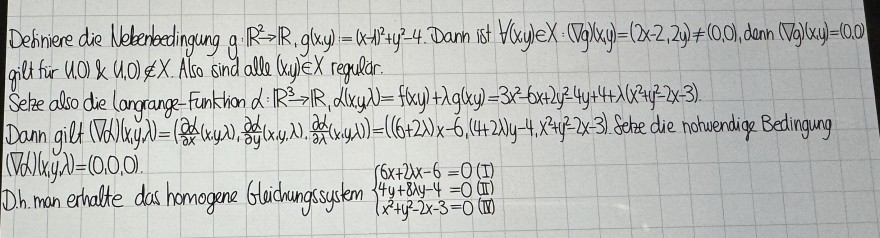 Definiere die Nebenbedingung g: ℝ²→ℝ, g(x,y) := (x-1)²+y²-4. Dann ist ∀(x,y)∈X: (∇g)(x,y)=(2x-2, 2y)≠(0,0), denn (∇g)(x,y)=(0,0)
gilt für (1,0) & (1,0)∉X. Also sind alle (x,y)∈X regulär.
Setze also die Langrange-Funktion ℒ: ℝ³→ℝ, ℒ(x,y,λ)=f(x,y)+λg(x,y)=3x²-6x+2y²-4y+4+λ(x²+y²-2x-3).
Dann gilt (∇ℒ)(x,y,λ)=(∂ℒ/∂x(x,y,λ), ∂ℒ/∂y(x,y,λ), ∂ℒ/∂λ(x,y,λ))=((6+2λ)x-6, (4+2λ)y-4, x²+y²-2x-3). Setze die notwendige Bedingung
(∇ℒ)(x,y,λ)=(0,0,0).
D.h. man erhalte das homogene Gleichungssystem { 6x+2λx-6 =0 (I)
4y+8λy-4 =0 (II)
x²+y²-2x-3=0 (IV)